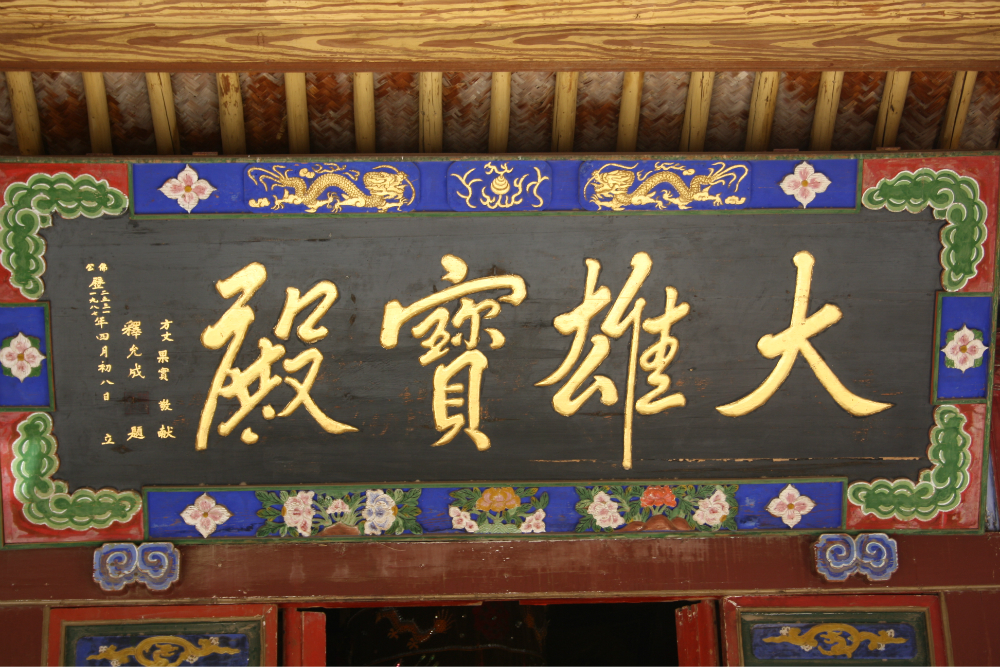 大雄寶殿
方丈果實敬献
釋允成題
佛曆二五三一
公曆一九八七年四月初八日立